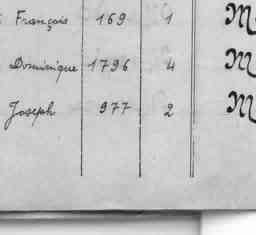 François 169 1 M
Dominique 1796 4 M
Joseph 977 2 M